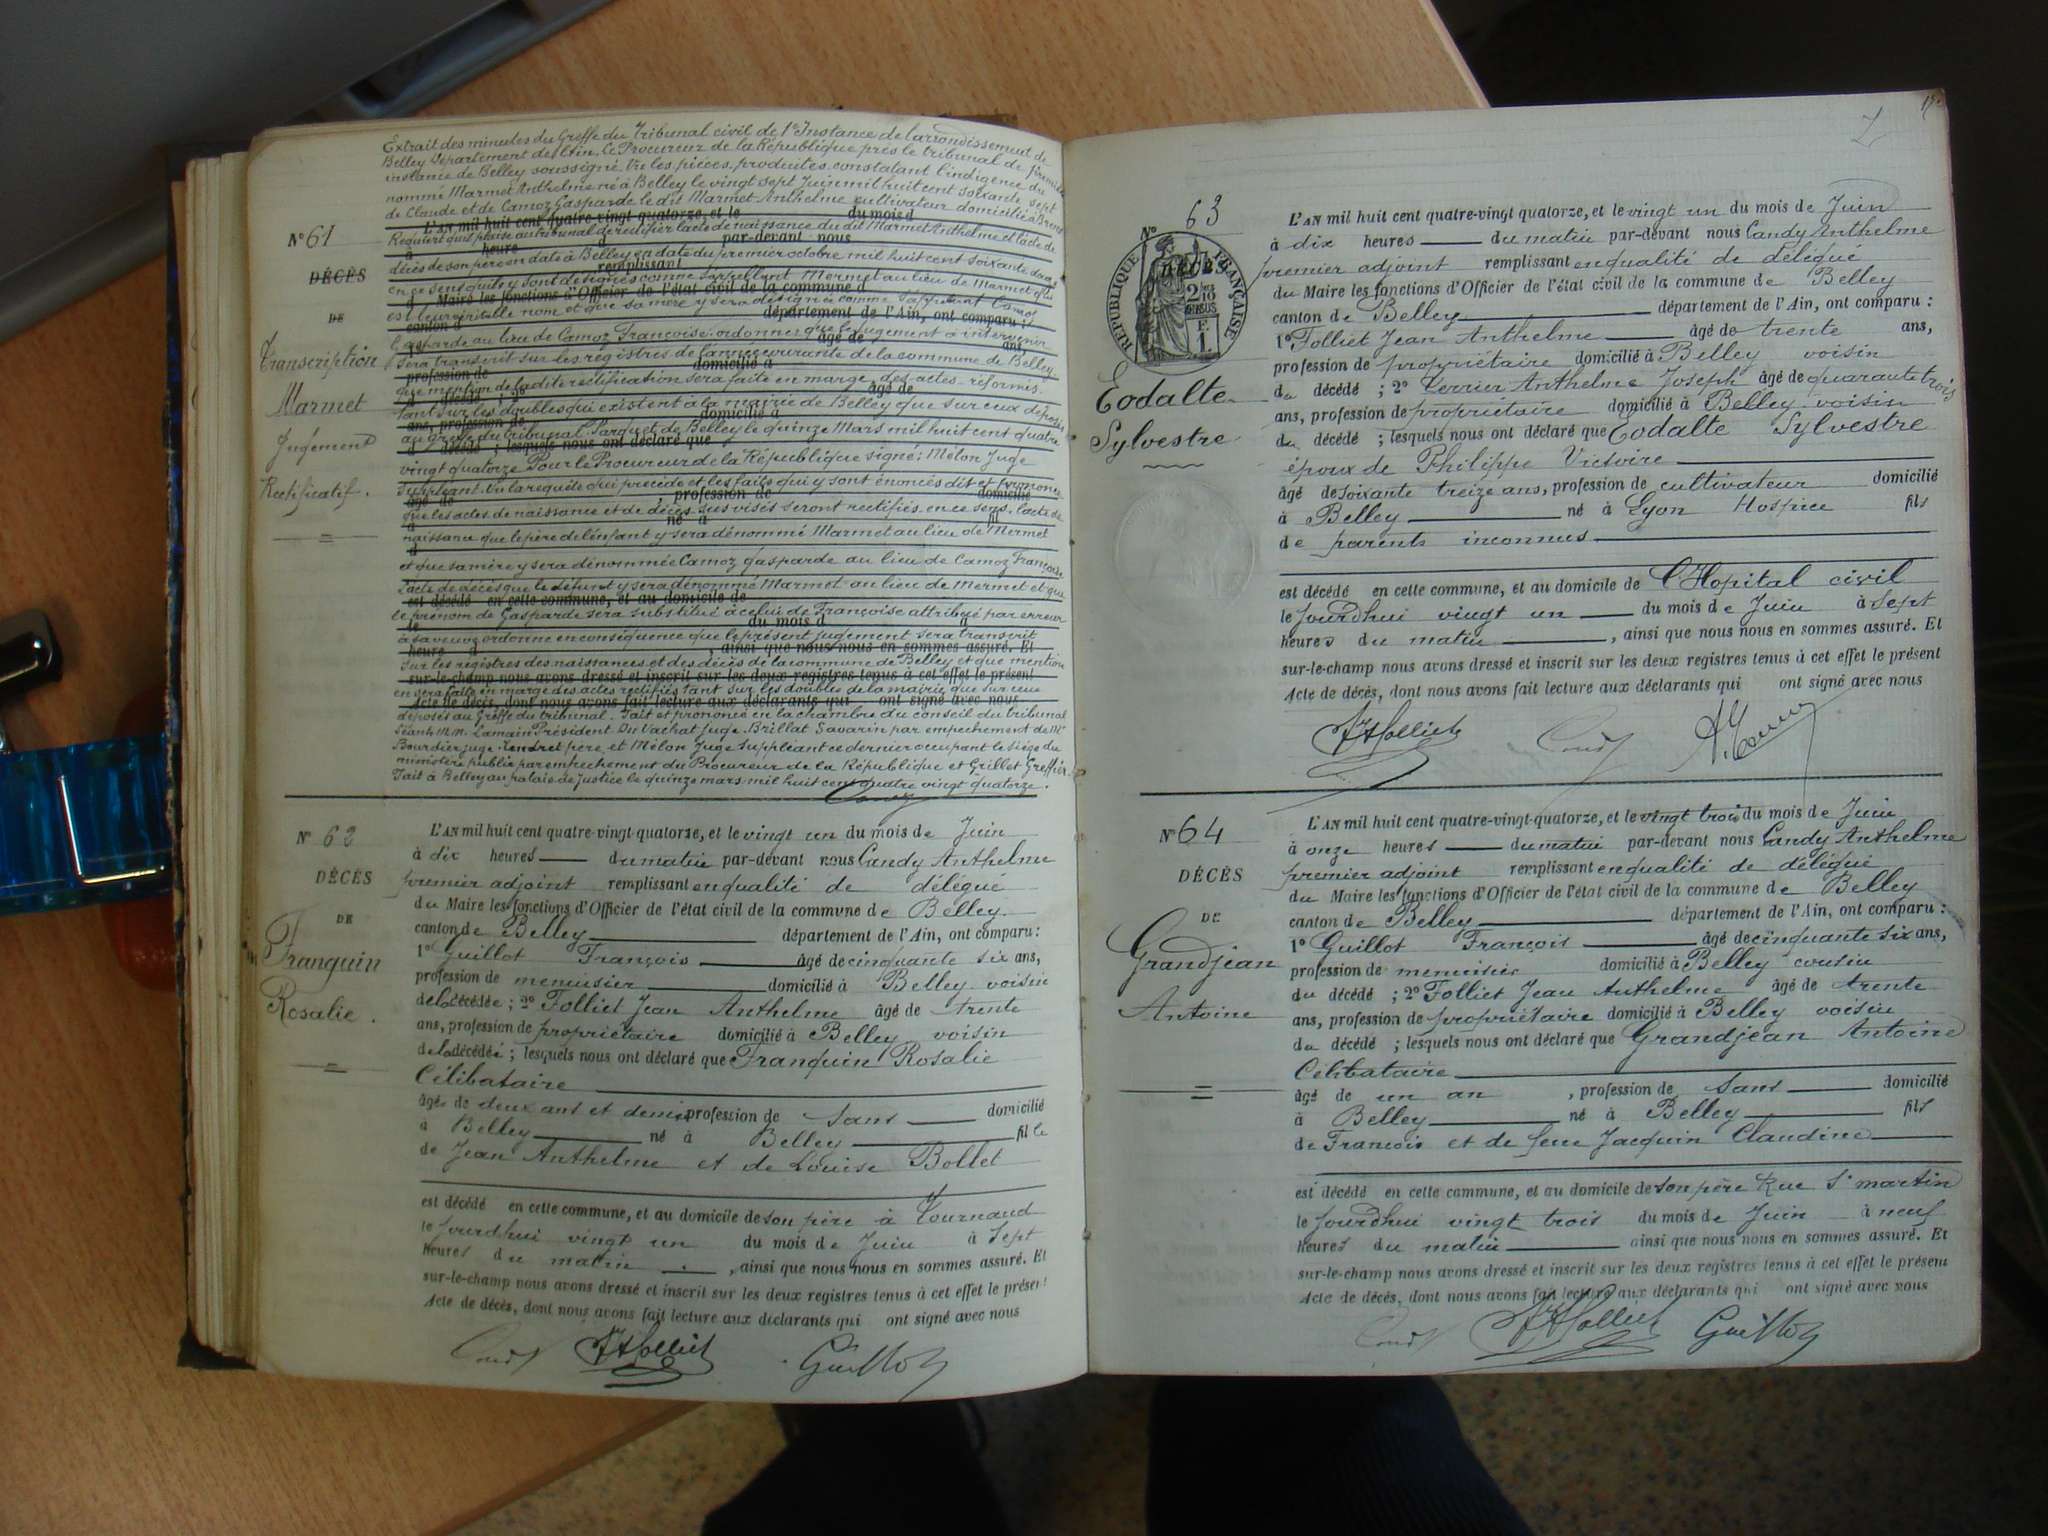 Extrait des minutes du Greffe du Tribunal civil de 1e Instance de l'arrondissement de
Belley Département de l'Ain. Le Procureur de la République près le tribunal de première
instance de Belley soussigné. Vu les pièces produites constatant l'indigence du
nommé Marmet Anthelme né à Belley le vingt sept Juin mil huit cent soixante sept
de Claude et de Camoz Gasparde le dit Marmet Anthelme cultivateur domicilié à
L'AN mil huit cent quatre-vingt quatorze, et le du mois d
Requiert qu'il plaise au tribunal de rectifier l'acte de naissance du dit Marmet Anthelme et l'acte de
N° 61
à heure d par-devant nous
décès de son père en date à Belley en date du premier octobre mil huit cent soixante
DÉCÈS
remplissant
en ce sens qu'ils y sont désignés comme s'appellant Mermet au lieu de Marmet qui
d Maire les fonctions d'Officier de l'état civil de la commune d
est leur véritable nom et que sa mère y sera désignée comme s'appelant Camoz
DE
canton d département de l'Ain, ont comparu :
Gasparde au lieu de Camoz Françoise: ordonner que le jugement à intervenir
âgé de ans
Transcription
sera transcrit sur les registres de l'année courante de la commune de Belley
profession de domicilié à
que mention de la dite rectification sera faite en marge des actes réformés
d décédé ; 2° âgé de
Marmet
tant sur les doubles qui existent à la mairie de Belley que sur ceux déposés
ans, profession de domicilié à
au Greffe du tribunal. Parquet de Belley le quinze Mars mil huit cent quatre
Jugement
d décédé ; lesquels nous ont déclaré que
vingt quatorze Pour le Procureur de la République signé: Mélon Juge
Suppléant. Vu la requête qui précède et les faits qui y sont énoncés dit et prononce
Rectificatif.
âgé de , profession de domicilié
que les actes de naissance et de décès sus visés seront rectifiés en ce sens. l'acte de
à né à fil
naissance que le père de l'enfant y sera dénommé Marmet au lieu de Mermet
d
et que sa mère y sera dénommée Camoz gasparde au lieu de Camoz Françoise
l'acte de décès que le défunt y sera dénommé Marmet au lieu de Mermet et que
est décédé en cette commune, et au domicile de
le prénom de Gasparde sera substitué à celui de Françoise attribué par erreur
le du mois d à
à sa veuve ordonne en conséquence que le présent jugement sera transcrit
heure d , ainsi que nous nous en sommes assuré. Et
sur les registres des naissances et des décès de la commune de Belley et que mention
sur-le-champ nous avons dressé et inscrit sur les deux registres tenus à cet effet le présent
en sera faite en marge des actes rectifiés tant sur les doubles de la mairie que sur ceux
Acte de décès, dont nous avons fait lecture aux déclarants qui ont signé avec nous
déposés au Greffe du tribunal. Fait et prononcé en la chambre du conseil du tribunal
Séants M.M. Lamain Président Du Vachat juge. Brillat Savarin par empêchement de Mr
Bourdier juge. Tendret père et Mélon Juge Suppléant ce dernier occupant le siège du
ministère public par empêchement du Procureur de la République et Grillet Greffier
Fait à Belley au palais de justice le quinze mars mil huit cent quatre vingt quatorze.
N° 62
L'AN mil huit cent quatre-vingt-quatorze, et le vingt un du mois de Juin
à dix heures du matin par-devant nous Candy Anthelme
DÉCÈS
premier adjoint remplissant en qualité de délégué
du Maire les fonctions d'Officier de l'état civil de la commune de Belley
DE
canton de Belley département de l'Ain, ont comparu :
Franquin
1° Guillot François âgé de cinquante six ans,
profession de menuisier domicilié à Belley voisin
Rosalie.
de la décédée ; 2° Folliet Jean Anthelme âgé de trente
ans, profession de propriétaire domicilié à Belley voisin
de la décédée ; lesquels nous ont déclaré que Franquin Rosalie
Célibataire
âgée de deux ans et demi profession de sans domicilié
à Belley né à Belley fille
de Jean Anthelme et de Louise Bollet
est décédé en cette commune, et au domicile de son père à Tournaud
le jourd'hui vingt un du mois de Juin à Sept
heures du matin , ainsi que nous nous en sommes assuré. Et
sur-le-champ nous avons dressé et inscrit sur les deux registres tenus à cet effet le présent
Acte de décès, dont nous avons fait lecture aux déclarants qui ont signé avec nous
Candy JA Folliet Guillot
15.
N° 63
L'AN mil huit cent quatre-vingt quatorze, et le vingt un du mois de Juin
à dix heures du matin par-devant nous Candy Anthelme
DÉCÈS
premier adjoint remplissant en qualité de délégué
RÉPUBLIQUE FRANÇAISE
2/10 EN SUS
1 F.
du Maire les fonctions d'Officier de l'état civil de la commune de Belley
canton de Belley département de l'Ain, ont comparu :
1° Folliet Jean Anthelme âgé de trente ans,
profession de propriétaire domicilié à Belley voisin
Eodalte
du décédé ; 2° Terrier Anthelme Joseph âgé de quarante trois
ans, profession de propriétaire domicilié à Belley voisin
Sylvestre
du décédé ; lesquels nous ont déclaré que Eodalte Sylvestre
époux de Philippe Victoire
âgé de soixante treize ans, profession de cultivateur domicilié
à Belley né à Lyon Hospice fils
de parents inconnus
est décédé en cette commune, et au domicile de l'Hopital civil
le jourd'hui vingt un du mois de Juin à sept
heures du matin , ainsi que nous nous en sommes assuré. Et
sur-le-champ nous avons dressé et inscrit sur les deux registres tenus à cet effet le présent
Acte de décès, dont nous avons fait lecture aux déclarants qui ont signé avec nous
JA Folliet Candy
N° 64
L'AN mil huit cent quatre-vingt-quatorze, et le vingt trois du mois de Juin
à onze heures du matin par-devant nous Candy Anthelme
DÉCÈS
premier adjoint remplissant en qualité de délégué
du Maire les fonctions d'Officier de l'état civil de la commune de Belley
DE
canton de Belley département de l'Ain, ont comparu :
Grandjean
1° Guillot François âgé de cinquante six ans,
profession de menuisier domicilié à Belley cousin
Antoine
du décédé ; 2° Folliet Jean Anthelme âgé de trente
ans, profession de propriétaire domicilié à Belley voisin
du décédé ; lesquels nous ont déclaré que Grandjean Antoine
Célibataire
âgé de un an , profession de sans domicilié
à Belley né à Belley fils
de François et de feue Jacquin Claudine
est décédé en cette commune, et au domicile de son père Rue St martin
le jourd'hui vingt trois du mois de Juin à neuf
heures du matin ainsi que nous nous en sommes assuré. Et
sur-le-champ nous avons dressé et inscrit sur les deux registres tenus à cet effet le présent
Acte de décès, dont nous avons fait lecture aux déclarants qui ont signé avec nous
Candy JA Folliet Guillot